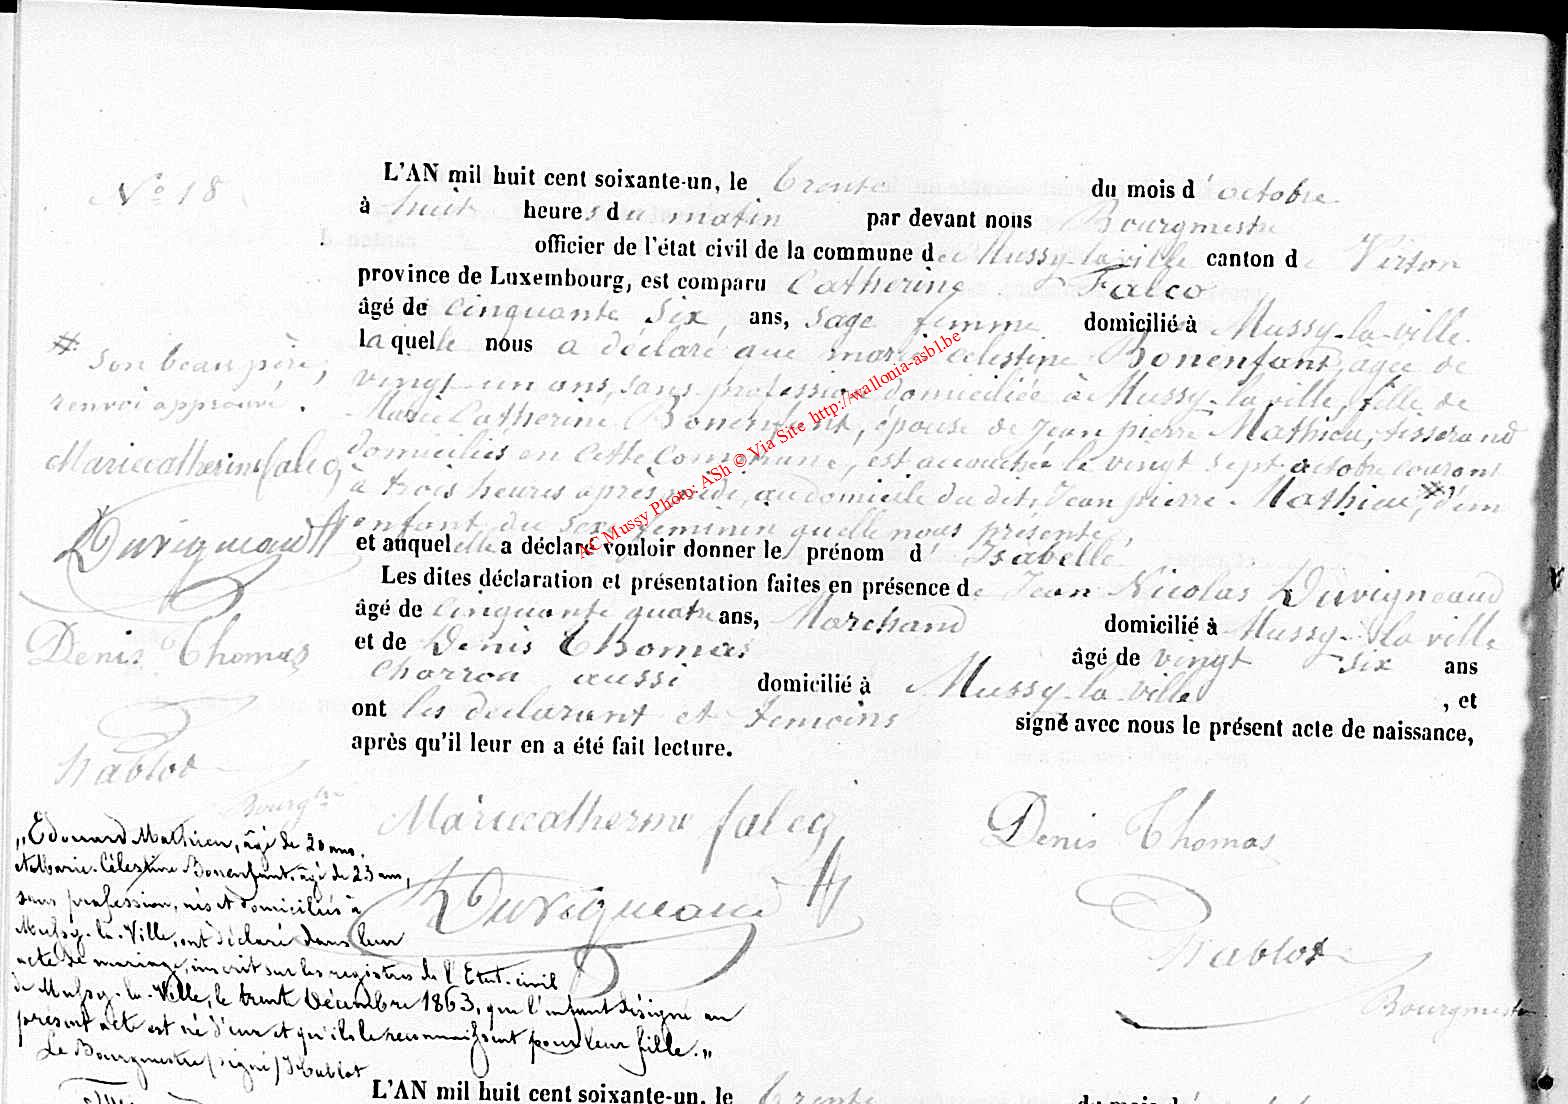 N.º 18
L'AN mil huit cent soixante-un, le trente du mois d'octobre
à huit heures du matin par devant nous Bourgmestre
officier de l'état civil de la commune de Mussy-la-ville canton de Virton
province de Luxembourg, est comparu Catherine Falco
âgé de cinquante six, ans, sage femme domicilié à Mussy-la-ville.
laquelle nous a déclaré que marie celestine Bonenfant, agée de
vingt un ans, sans profession domiciliée à Mussy-la-ville, fille de
Marie Catherine Bonenfant, épouse de Jean pierre Mathieu, tisserand
domiciliés en cette commune, est accouchée le vingt sept octobre courant
à trois heures après midi, au domicile du dit, Jean pierre Mathieu, # d'un
enfant du sexe feminin quelle nous presente,
et auquel elle a déclaré vouloir donner le prénom d'Isabelle
Les dites déclaration et présentation faites en présence de Jean Nicolas Duvigneaud
âgé de cinquante quatre ans, Marchand domicilié à Mussy-la-ville
et de Denis Thomas âgé de vingt six ans
charron aussi domicilié à Mussy-la-ville, et
ont les declarant et temoins signé avec nous le présent acte de naissance,
après qu'il leur en a été fait lecture.
# son beau père,
renvoi approuvé.
Mariecatherine falcq
Duvigneaud
Denis Thomas
Hablot
Bourgtre
Mariecatherine falcq
Denis Thomas
Duvigneaud
Hablot
Bourgmestre
„Edouard Mathieu, âgé de 20 ans,
et Marie-Célestine Bonenfant, âgé de 23 ans,
sans profession, nés et domiciliés à
Mussy-la-Ville, ont déclaré dans leur
acte de mariage, inscrit sur les registres de l'Etat-civil
de Mussy-la-Ville, le trente Décembre 1863, que l'enfant désigné au
présent acte est né d'eux et qu'ils le reconnaissent pour leur fille.„
Le Bourgmestre (signé) Hablot
L'AN mil huit cent soixante-un, le trente du mois d
AC Mussy Photo: ASh © Via Site http://wallonia-asbl.be